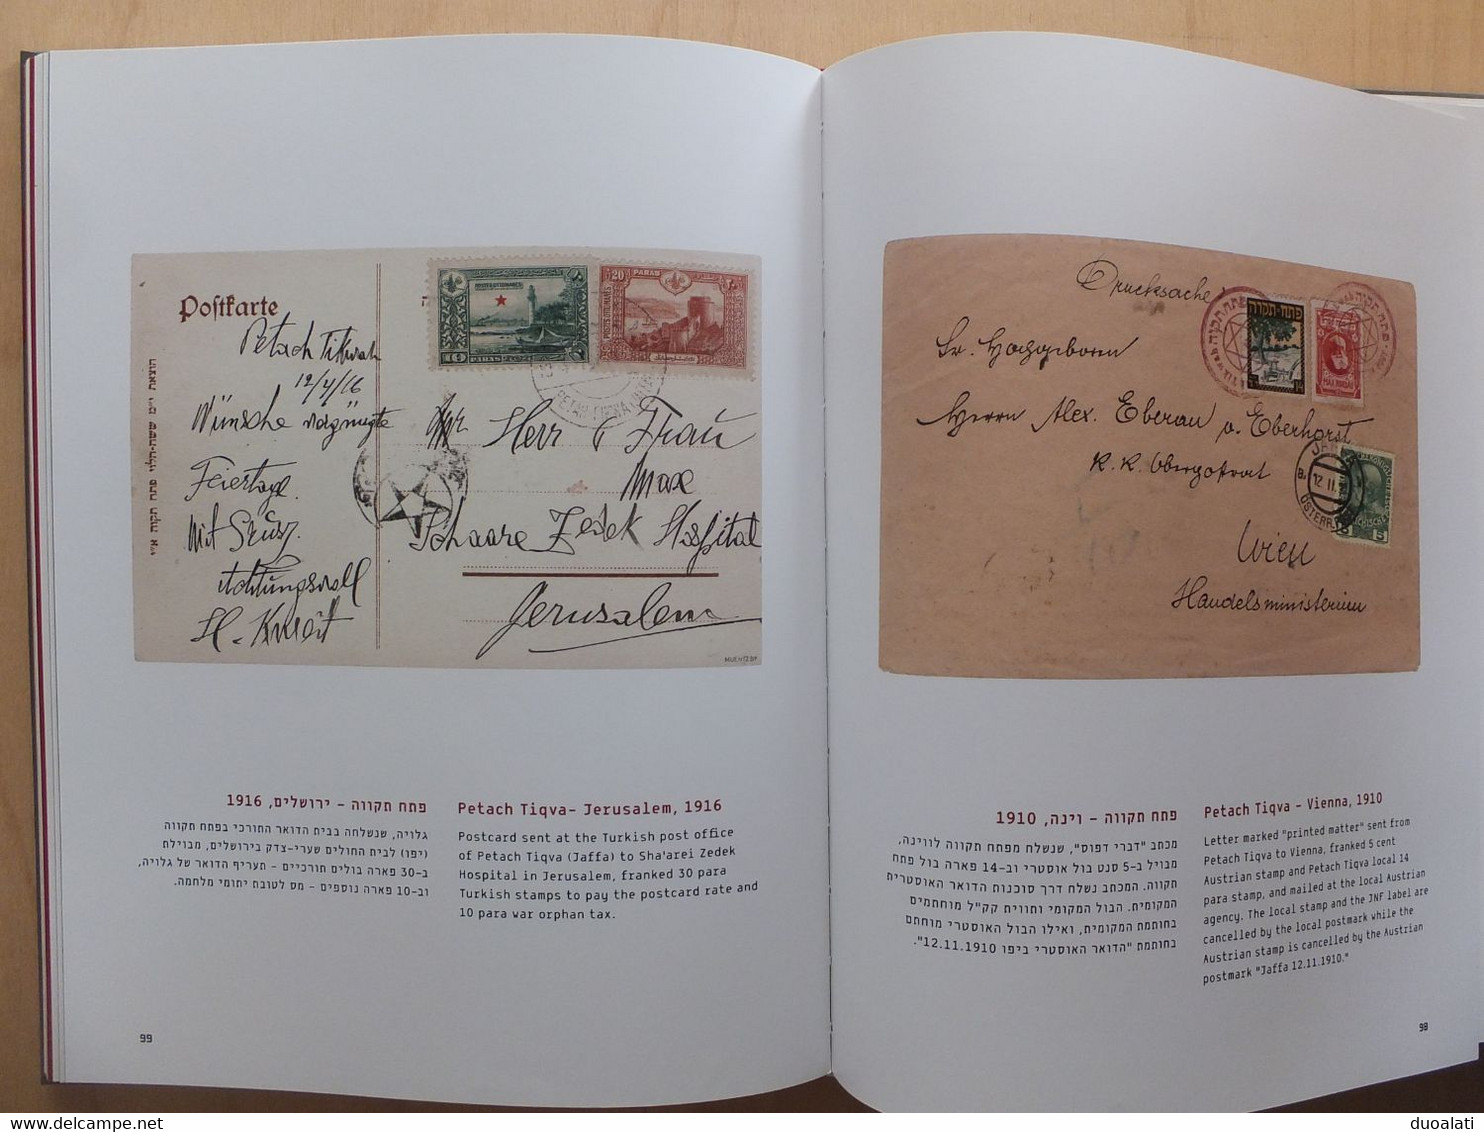 Postkarte
Petach Tikwah
12/4/16
Wünsche vergnügte
Feiertage.
Mit Gruss
Achtungsvoll
H.
הוצאת י״ים ששת-הלוי פתח תקוה א״י
POSTES OTTOMANES
10 PARAS
20 PARAS
POSTES OTTOMANES
Herr & Frau
Max
Schaare Zedek Hospital
Jerusalem
פתח תקווה – ירושלים, 1916
גלויה, שנשלחה בבית הדואר התורכי בפתח תקווה
(יפו) לבית החולים שערי-צדק בירושלים, מבוילת
ב-30 פארה בולים תורכיים – תעריף הדואר של גלויה,
וב-10 פארה נוספים – מס לטובת יתומי מלחמה.
Petach Tiqva- Jerusalem, 1916
Postcard sent at the Turkish post office
of Petach Tiqva (Jaffa) to Sha'arei Zedek
Hospital in Jerusalem, franked 30 para
Turkish stamps to pay the postcard rate and
10 para war orphan tax.
99
Drucksache
פתח-תקוה
MAX NORDAU
Sr. Hochgeboren
Herrn Alex. Eberan v. Eberhorst
K. K. Obergeftrat
Wien
Handelsministerium
JAFFA
12 11
ÖSTERR.
5
פתח תקווה – וינה, 1910
מכתב "דברי דפוס", שנשלח מפתח תקווה לווינה,
מבויל ב-5 סנט בול אוסטרי וב-14 פארה בול פתח
תקווה. המכתב נשלח דרך סוכנות הדואר האוסטרית
המקומית. הבול המקומי ותווית קק"ל מוחתמים
בחותמת המקומית, ואילו הבול האוסטרי מוחתם
בחותמת "הדואר האוסטרי ביפו 12.11.1910".
Petach Tiqva – Vienna, 1910
Letter marked "printed matter" sent from
Petach Tiqva to Vienna, franked 5 cent
Austrian stamp and Petach Tiqva local 14
para stamp, and mailed at the local Austrian
agency. The local stamp and the JNF label are
cancelled by the local postmark while the
Austrian stamp is cancelled by the Austrian
postmark "Jaffa 12.11.1910."
98
duoalati